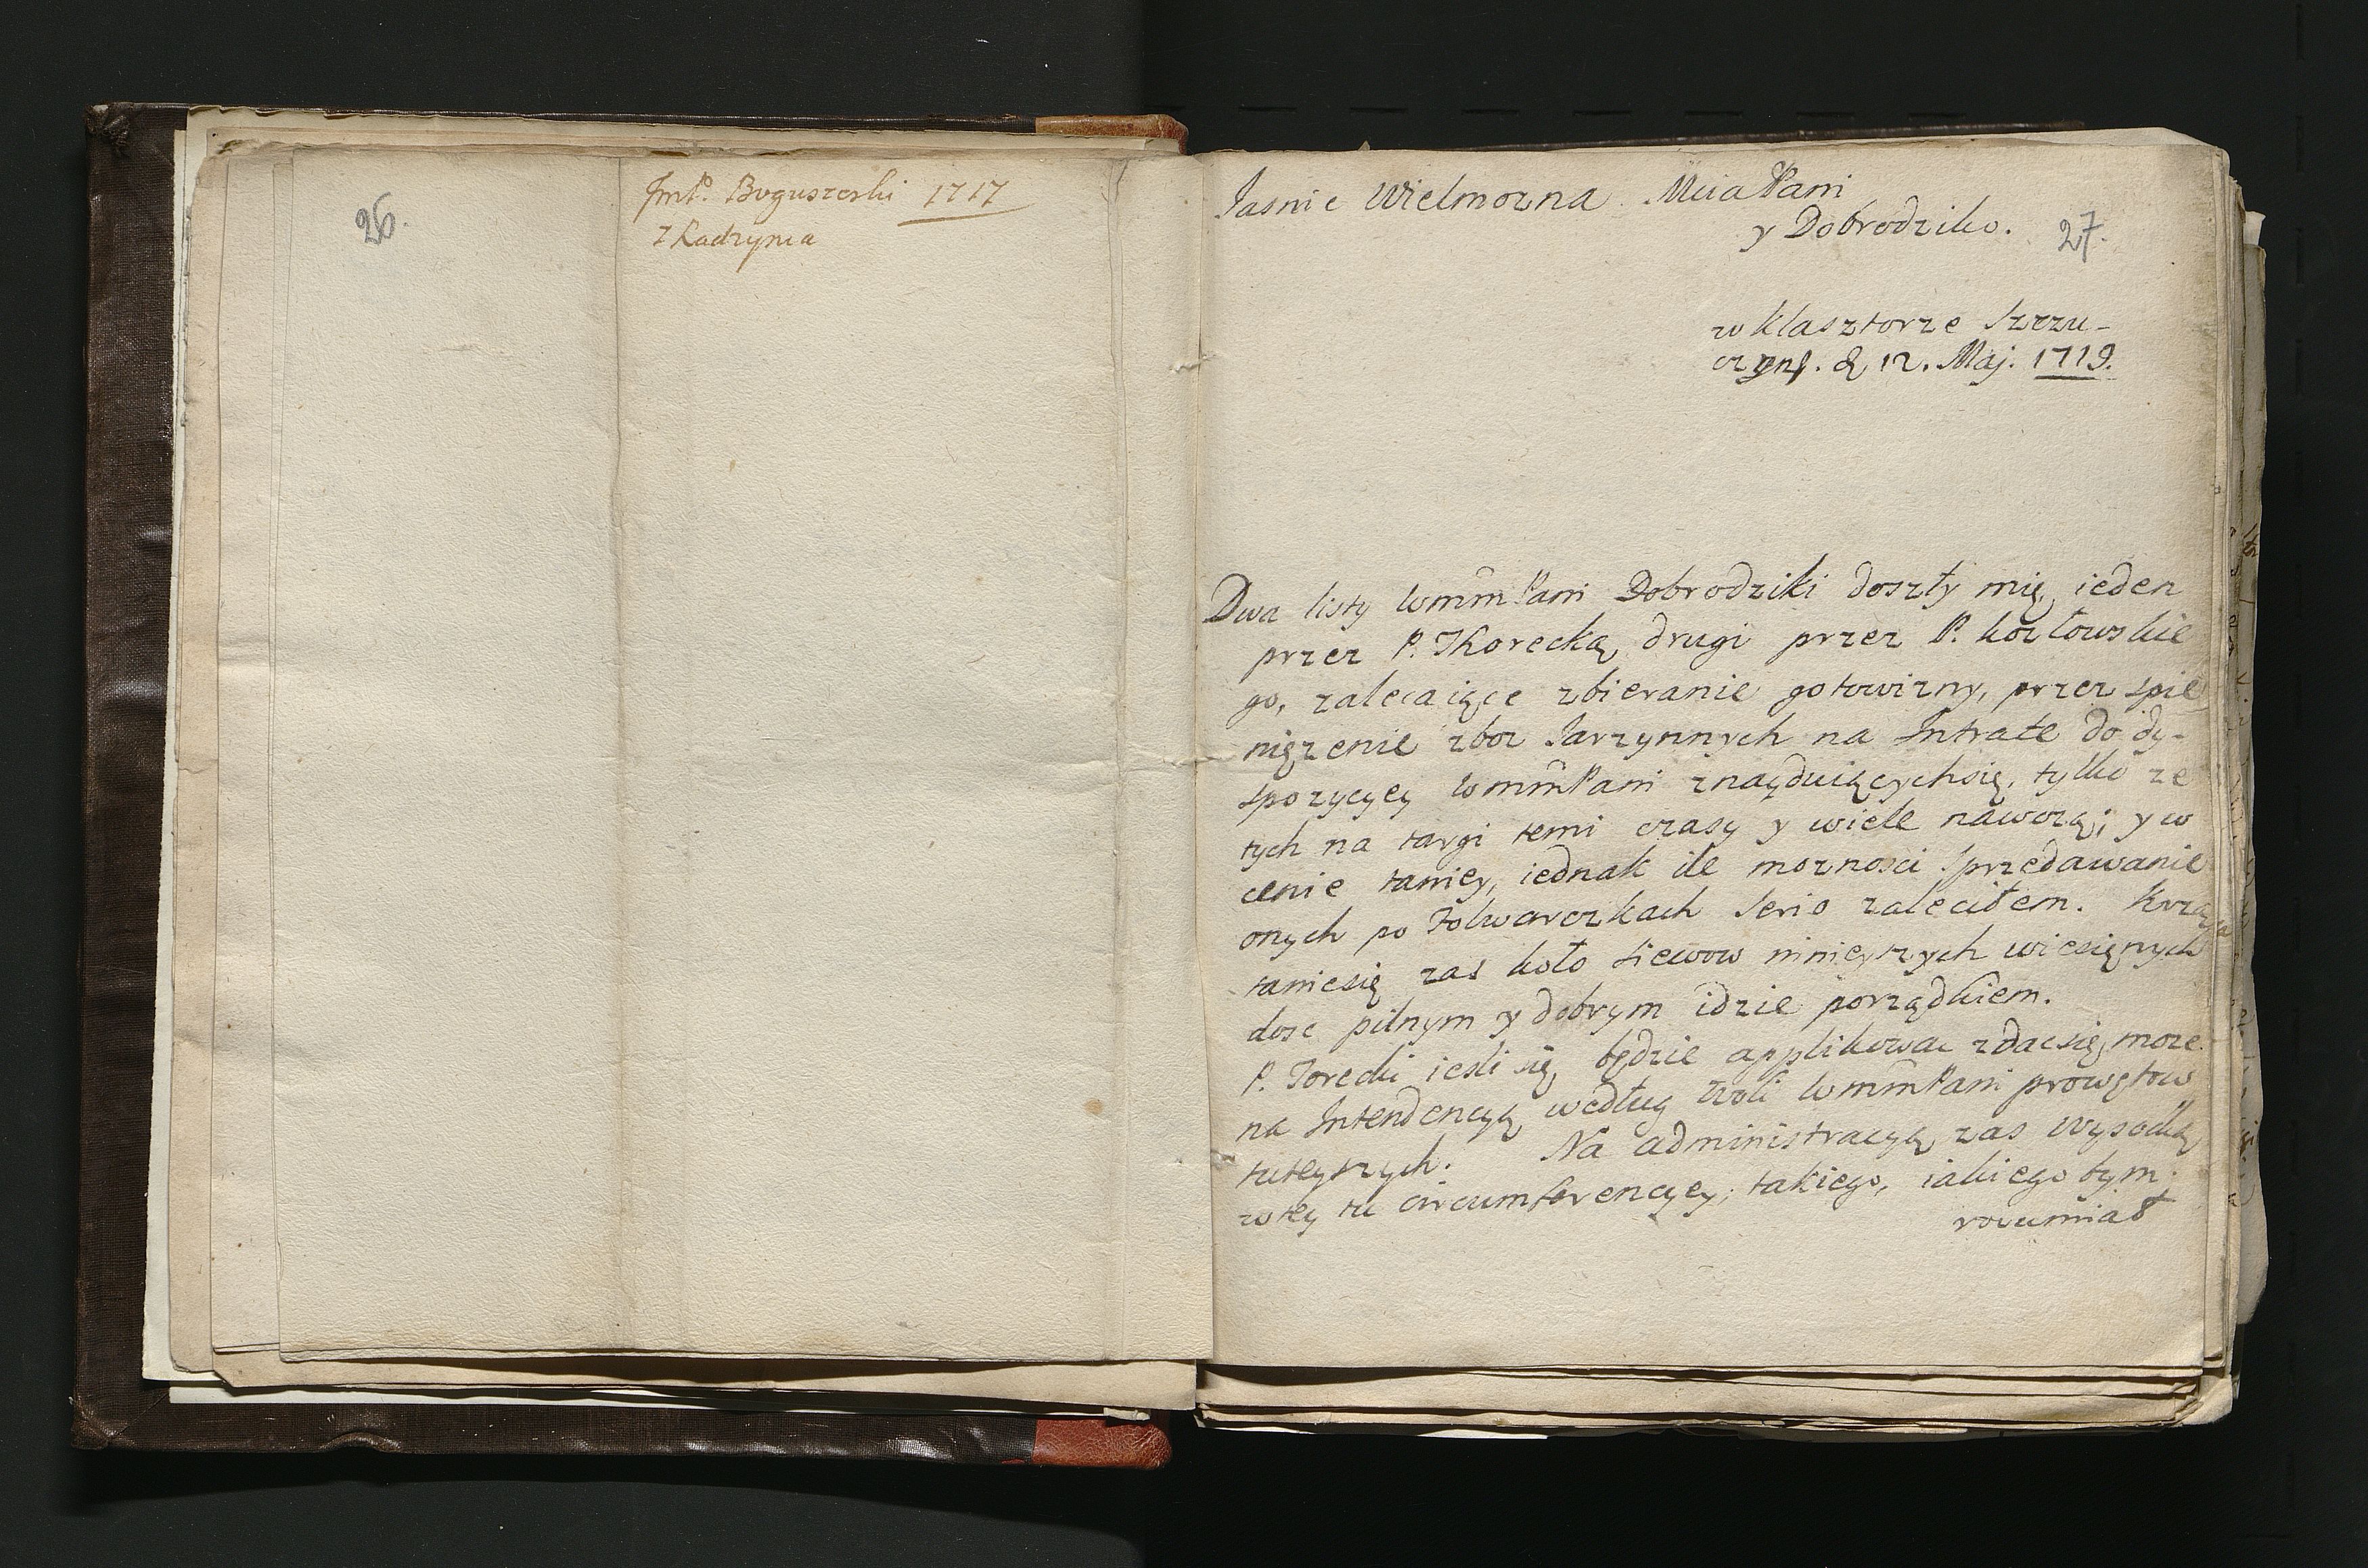 26.
JmP. Boguszeski 1717
z Radzynia
Jasnie Wielmozna Mcia Pani
y Dobrodziko.
27.
w klasztorze Szczu-
czyns. d 12. Maj. 1719.
Dwa listy WmmPani Dobrodziki doszły mię, ieden
przez P. Korecką drugi przez P. Kozłowskie
go, zalecaiące zbieranie gotowizny, przez spie
niężenie zboz Jarzynnych na Intratę do dy-
spozycyey WmmPani znayduiącychsię, tylko ze
tych na targi temi czasy y wiele nawożą, y w
cenie taniey, iednak ile moznosci sprzedawanie
onych po Folwarczkach serio zaleciłem. Krzą
taniesię zas koło siewow ninieyszych wiesięnych
dosc pilnym y dobrym idzie porządkiem.
P. Torecki iesli się będzie applikowac zdacsię moze
na Intendencyą według woli WmmPani prowętow
tuteyszych. Na administracyą zas Wysocką
w tey tu circumferencyey, takiego, iakiego bym
rozumiał